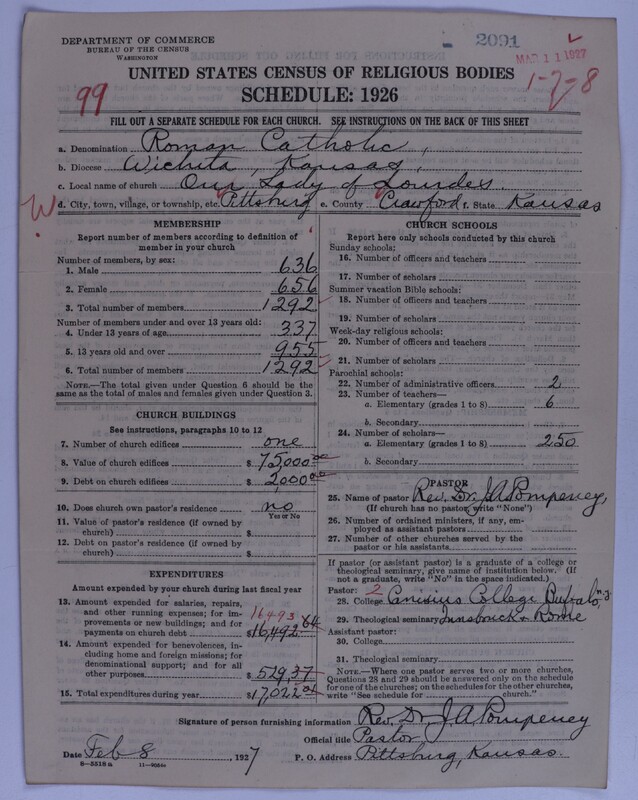 DEPARTMENT OF COMMERCE
BUREAU OF THE CENSUS
WASHINGTON
2091
MAR 11 1927
1-7-8
UNITED STATES CENSUS OF RELIGIOUS BODIES
SCHEDULE: 1926
99
FILL OUT A SEPARATE SCHEDULE FOR EACH CHURCH. SEE INSTRUCTIONS ON THE BACK OF THIS SHEET
a. Denomination Roman Catholic,
b. Diocese Wichita, Kansas,
c. Local name of church Our Lady of Lourdes.
W d. City, town, village, or township, etc. Pittsburg e. County Crawford f. State Kansas
MEMBERSHIP
Report number of members according to definition of member in your church
Number of members, by sex:
1. Male 636
2. Female 656
3. Total number of members 1292
Number of members under and over 13 years old:
4. Under 13 years of age 337
5. 13 years old and over 955
6. Total number of members 1292
NOTE.—The total given under Question 6 should be the same as the total of males and females given under Question 3.
CHURCH BUILDINGS
See instructions, paragraphs 10 to 12
7. Number of church edifices one
8. Value of church edifices $ 75,000.00
9. Debt on church edifices $ 2,000.00
10. Does church own pastor's residence? no
Yes or No
11. Value of pastor's residence (if owned by church) $
12. Debt on pastor's residence (if owned by church) $
EXPENDITURES
Amount expended by your church during last fiscal year
13. Amount expended for salaries, repairs, and other running expenses; for improvements or new buildings; and for payments on church debt $ 16,492.64
16493
14. Amount expended for benevolences, including home and foreign missions; for denominational support; and for all other purposes $ 529.37
15. Total expenditures during year $ 17,022.01
CHURCH SCHOOLS
Report here only schools conducted by this church
Sunday schools:
16. Number of officers and teachers
17. Number of scholars
Summer vacation Bible schools:
18. Number of officers and teachers
19. Number of scholars
Week-day religious schools:
20. Number of officers and teachers
21. Number of scholars
Parochial schools:
22. Number of administrative officers 2
23. Number of teachers—
a. Elementary (grades 1 to 8) 6
b. Secondary
24. Number of scholars—
a. Elementary (grades 1 to 8) 250
b. Secondary
PASTOR
25. Name of pastor Rev. Dr. J A Pompeney,
(If church has no pastor, write "None")
26. Number of ordained ministers, if any, employed as assistant pastors
27. Number of other churches served by the pastor or his assistants
If pastor (or assistant pastor) is a graduate of a college or theological seminary, give name of institution below. (If not a graduate, write "No" in the space indicated.)
Pastor: 2
28. College Canisius College Buffalo, n.y.
29. Theological seminary Innsbruck & Rome
Assistant pastor:
30. College
31. Theological seminary
NOTE.—Where one pastor serves two or more churches, Questions 28 and 29 should be answered only on the schedule for one of the churches; on the schedules for the other churches, write "See schedule for church."
Signature of person furnishing information Rev. Dr. J. A Pompeney
Official title Pastor
Date Feb 8, 1927 P. O. Address Pittsburg, Kansas.
8-5318 a 11-9054